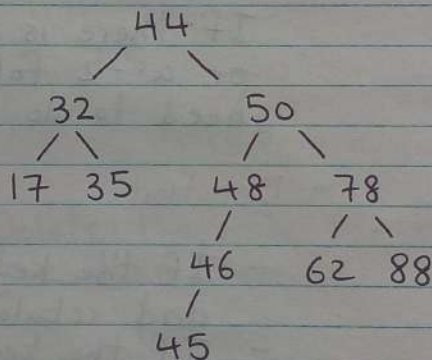 44
32 50
17 35 48 78
46 62 88
45